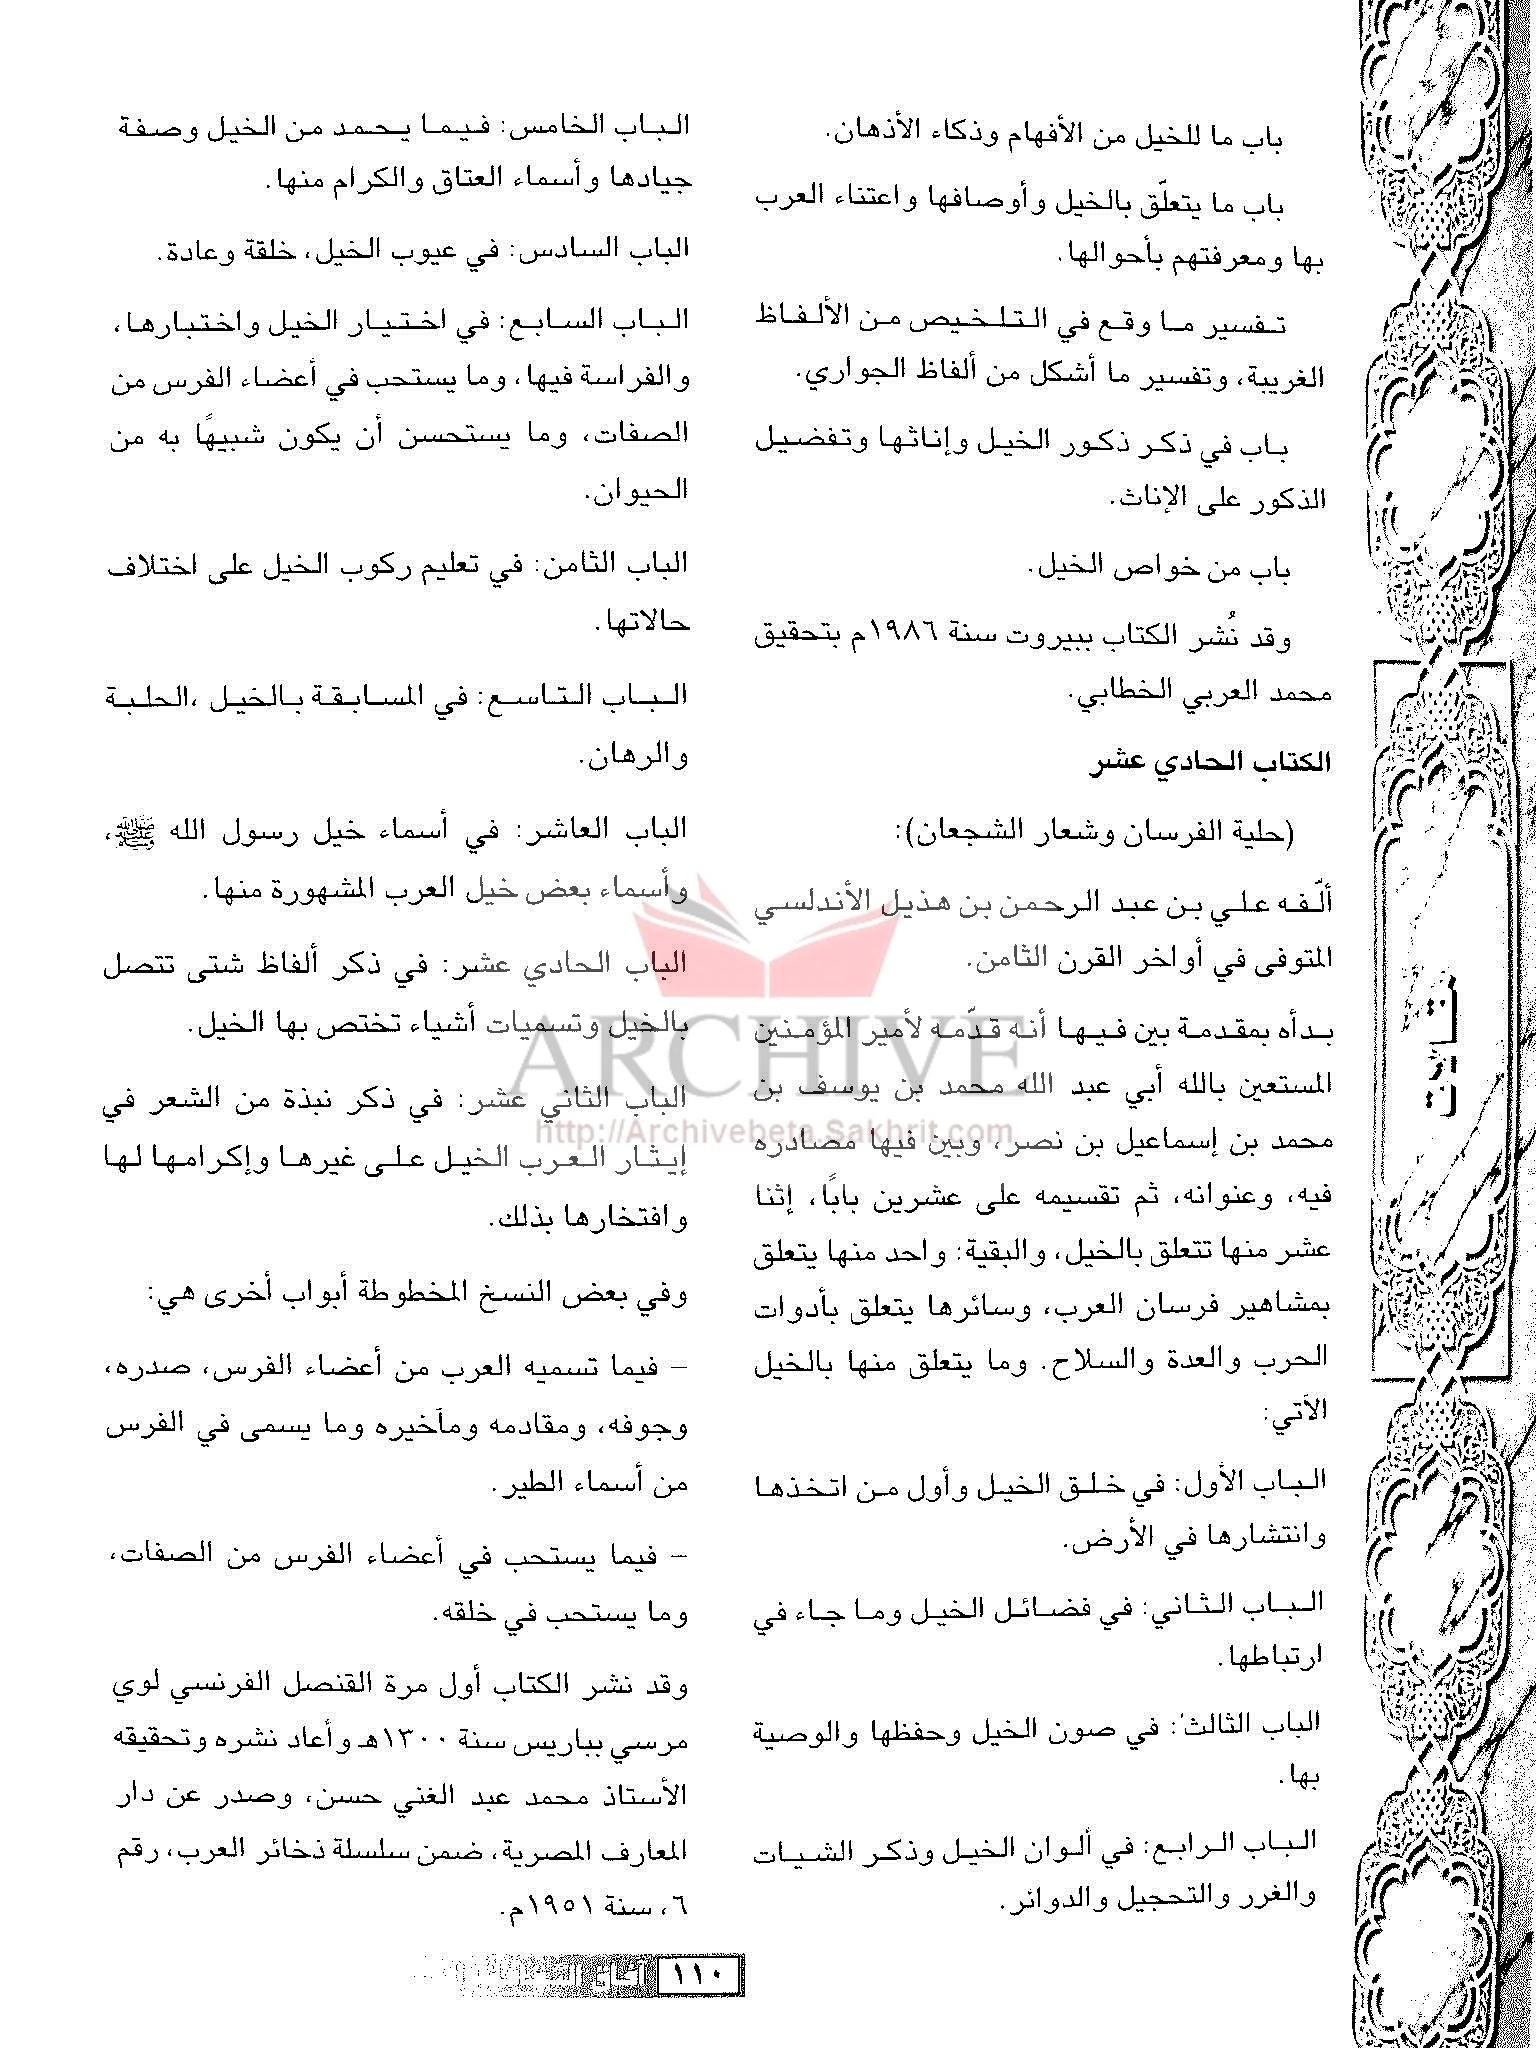 باب ما للخيل من الأفهام وذكاء الأذهان.
باب ما يتعلّق بالخيل وأوصافها واعتناء العرب
بها ومعرفتهم بأحوالها.
تفسير ما وقع في التلخيص من الألفاظ
الغريبة، وتفسير ما أشكل من ألفاظ الجواري.
باب في ذكر ذكور الخيل وإناثها وتفضيل
الذكور على الإناث.
باب من خواص الخيل.
وقد نُشر الكتاب ببيروت سنة ١٩٨٦م بتحقيق
محمد العربي الخطابي.
الكتاب الحادي عشر
(حلية الفرسان وشعار الشجعان):
ألّفه علي بن عبد الرحمن بن هذيل الأندلسي
المتوفى في أواخر القرن الثامن.
بدأه بمقدمة بين فيها أنه قدّمه لأمير المؤمنين
المستعين بالله أبي عبد الله محمد بن يوسف بن
محمد بن إسماعيل بن نصر، وبين فيها مصادره
فيه، وعنوانه، ثم تقسيمه على عشرين بابًا، إثنا
عشر منها تتعلق بالخيل، والبقية: واحد منها يتعلق
بمشاهير فرسان العرب، وسائرها يتعلق بأدوات
الحرب والعدة والسلاح. وما يتعلق منها بالخيل
الآتي:
الباب الأول: في خلق الخيل وأول من اتخذها
وانتشارها في الأرض.
الباب الثاني: في فضائل الخيل وما جاء في
ارتباطها.
الباب الثالث: في صون الخيل وحفظها والوصية
بها.
الباب الرابع: في ألوان الخيل وذكر الشيات
والغرر والتحجيل والدوائر.
الباب الخامس: فيما يحمد من الخيل وصفة
جيادها وأسماء العتاق والكرام منها.
الباب السادس: في عيوب الخيل، خلقة وعادة.
الباب السابع: في اختيار الخيل واختبارها،
والفراسة فيها، وما يستحب في أعضاء الفرس من
الصفات، وما يستحسن أن يكون شبيهًا به من
الحيوان.
الباب الثامن: في تعليم ركوب الخيل على اختلاف
حالاتها.
الباب التاسع: في المسابقة بالخيل ،الحلبة
والرهان.
الباب العاشر: في أسماء خيل رسول الله ﷺ،
وأسماء بعض خيل العرب المشهورة منها.
الباب الحادي عشر: في ذكر ألفاظ شتى تتصل
بالخيل وتسميات أشياء تختص بها الخيل.
الباب الثاني عشر: في ذكر نبذة من الشعر في
إيثار العرب الخيل على غيرها وإكرامها لها
وافتخارها بذلك.
وفي بعض النسخ المخطوطة أبواب أخرى هي:
– فيما تسميه العرب من أعضاء الفرس، صدره،
وجوفه، ومقادمه ومآخيره وما يسمى في الفرس
من أسماء الطير.
– فيما يستحب في أعضاء الفرس من الصفات،
وما يستحب في خلقه.
وقد نشر الكتاب أول مرة القنصل الفرنسي لوي
مرسي بباريس سنة ١٣٠٠هـ وأعاد نشره وتحقيقه
الأستاذ محمد عبد الغني حسن، وصدر عن دار
المعارف المصرية، ضمن سلسلة ذخائر العرب، رقم
٦، سنة ١٩٥١م.
ARCHIVE
http://Archivebeta.Sakhrit.com
مقالات
١١٠